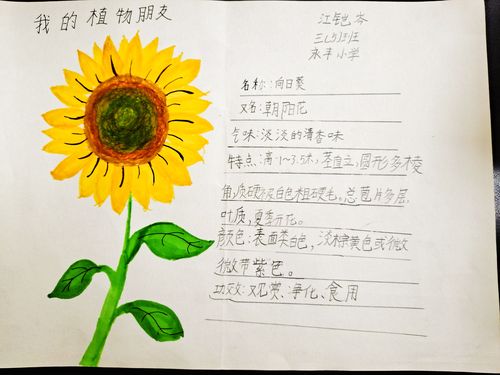 我的植物朋友
江铠岑
三(5)班
永丰小学
名称:向日葵
又名:朝阳花
气味:淡淡的清香味
特点:高1~3.5米,茎直立,圆形多棱
角,质硬被白色粗硬毛。总苞片多层,
叶质,夏季开花。
颜色:表面类白色,淡棕黄色或微
微带紫色。
功效:观赏、净化、食用